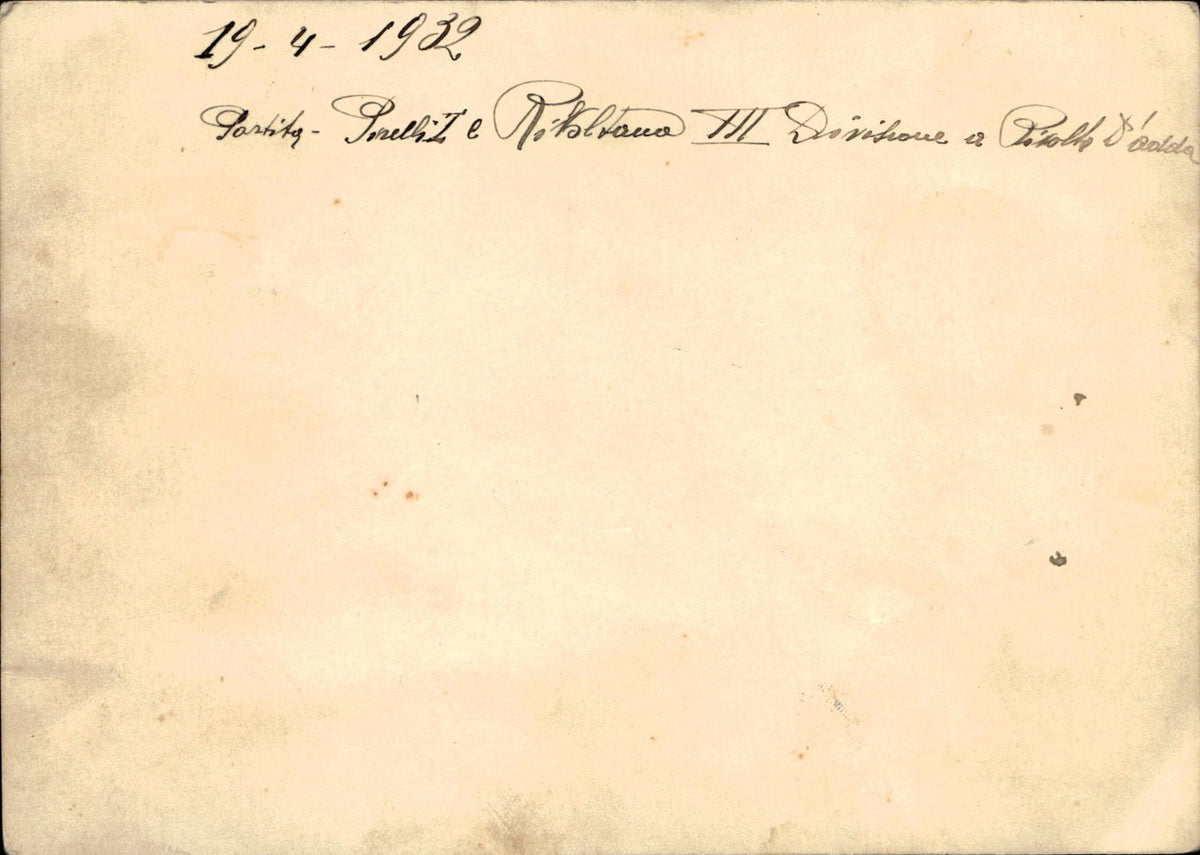 19-4-1932
Partita - Pirelli I e Rivoltana III Divisione a Rivolta D'adda